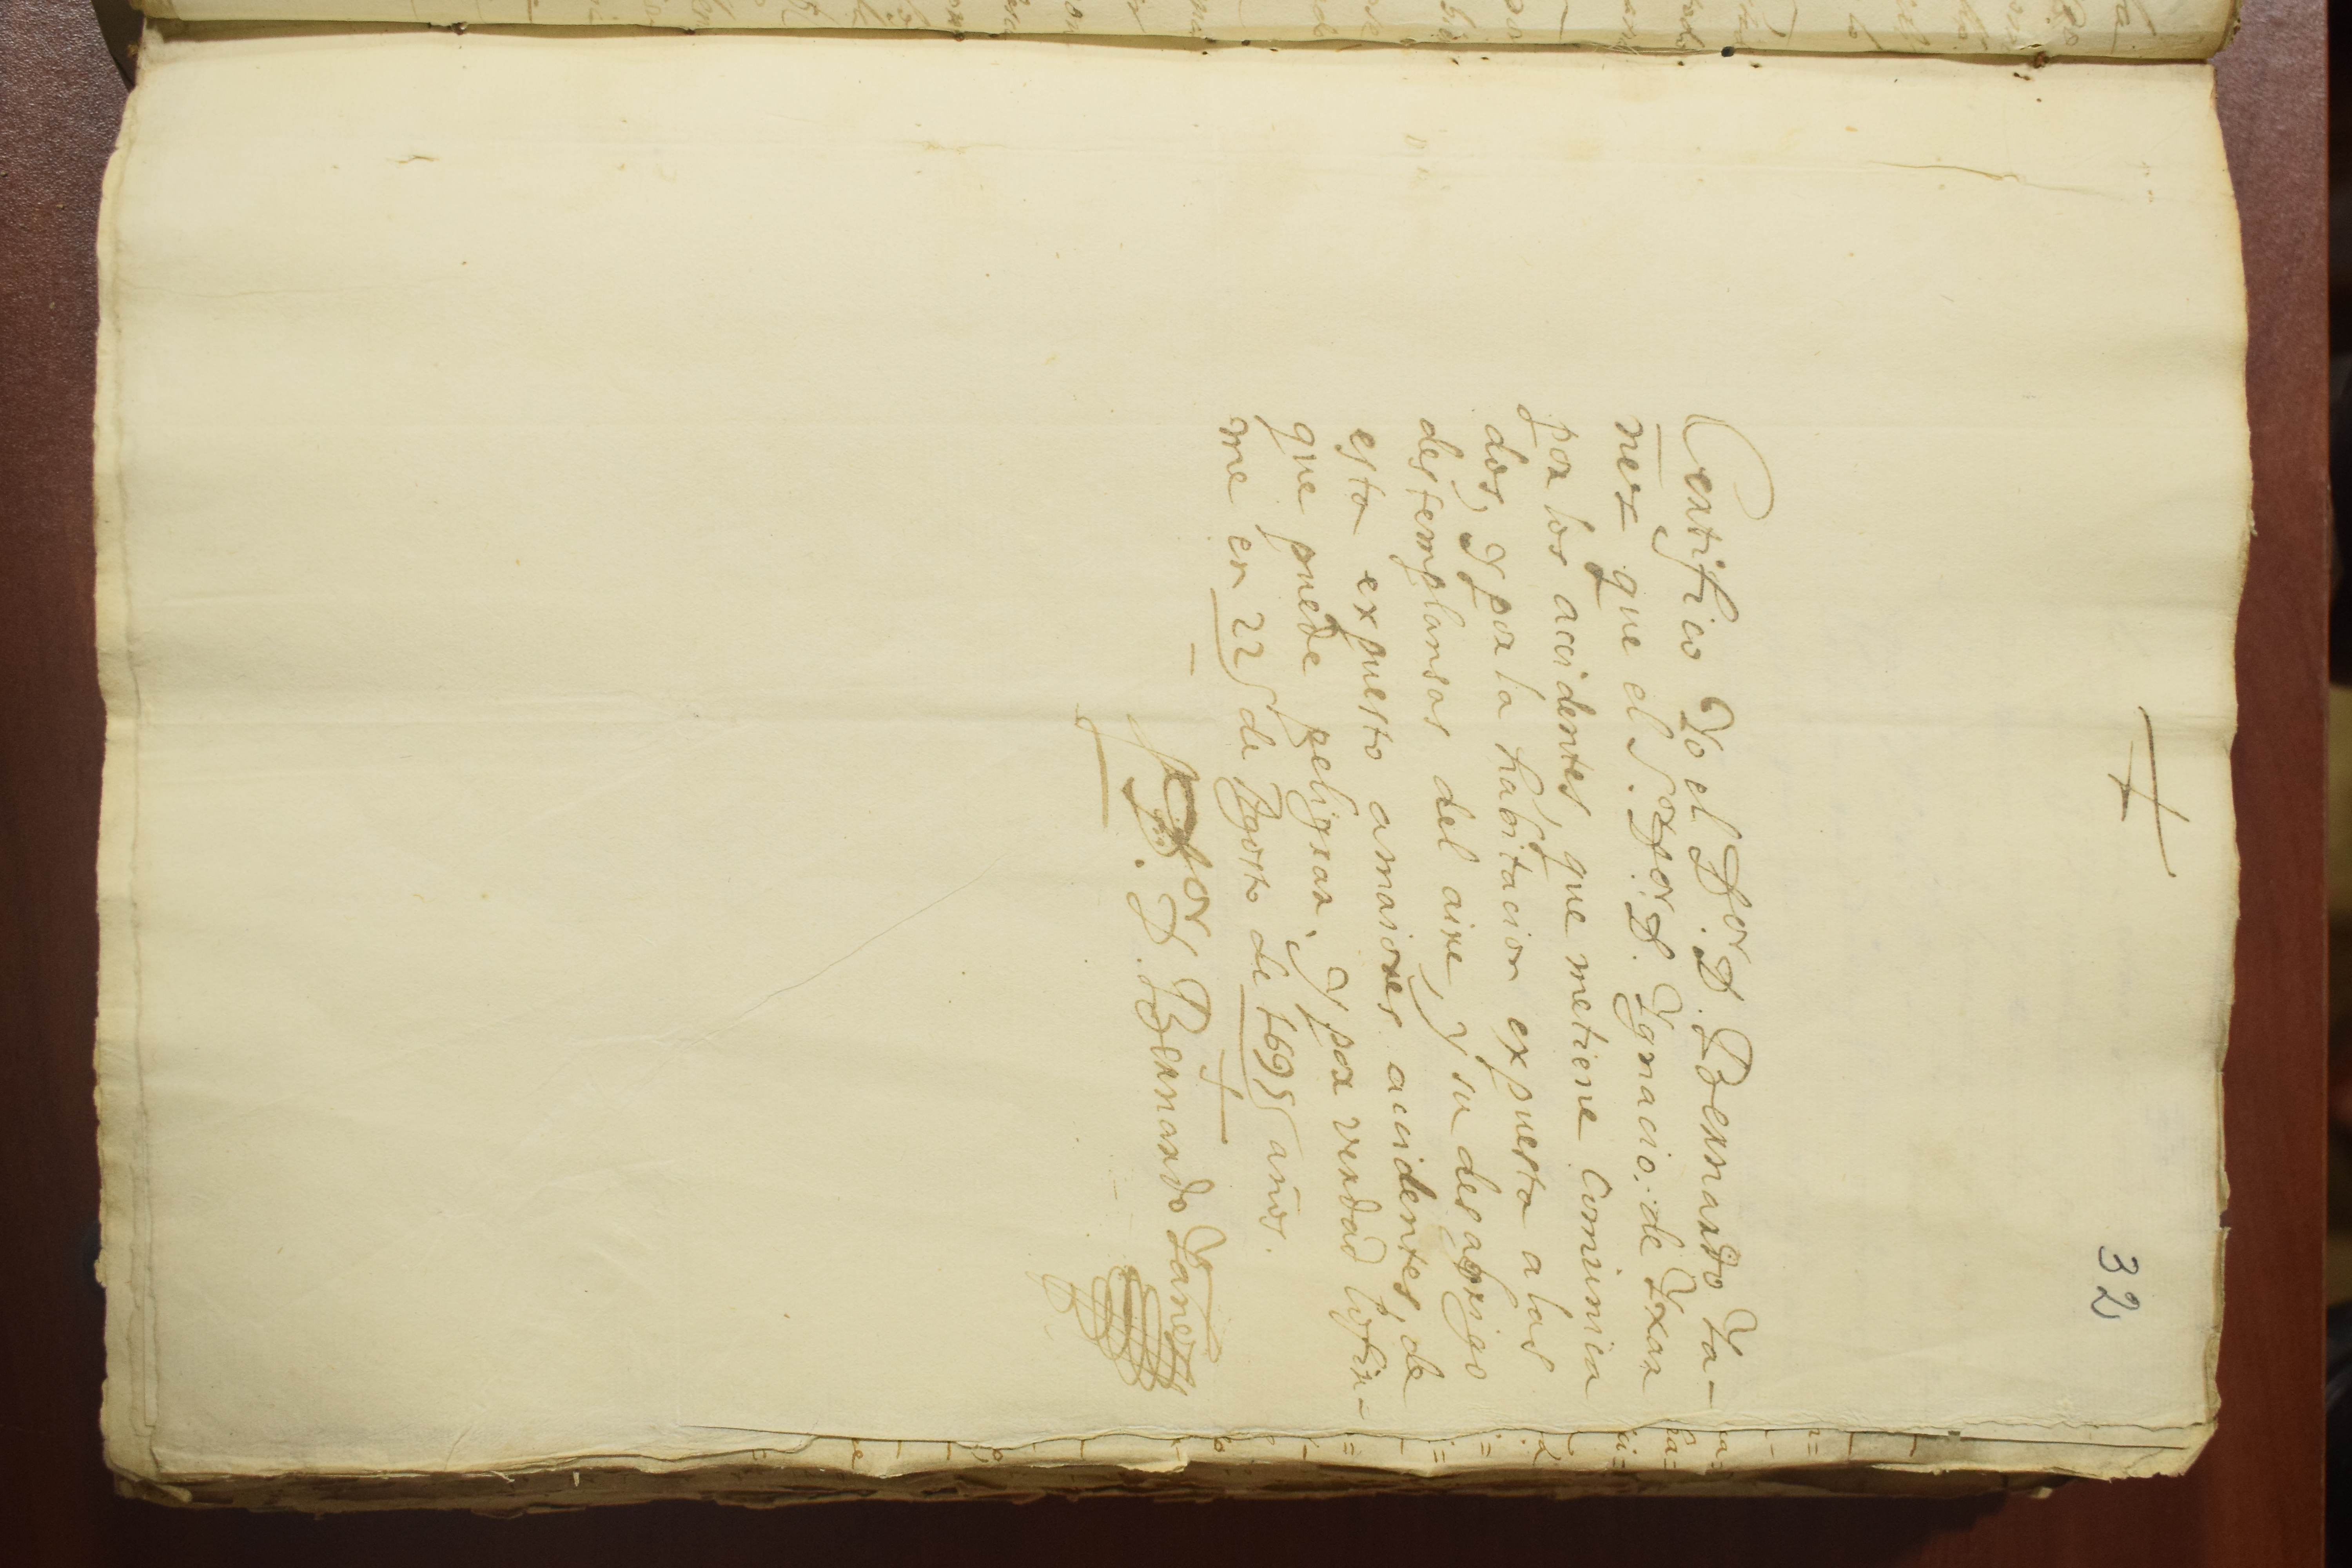 32
Certifico Yo el D.or D. Bernardo Ya-
ñes que el S.or D.or D. Ygnacio de Yxar
por los accidentes, que me tiene Comunica
dos, y por la habitacion expuesta a las
destemplansas del aire, y su desabrigo
esta expuesto a maiores accidentes, de
que puede peligrar, y por verdad lo fir-
me en 22 de Agosto de 1695 años.
D.or D. Bernardo Yañes